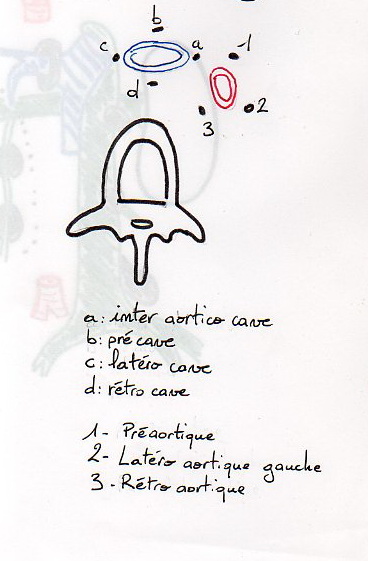 b
c
a
1
d
3
2
a: inter aortico cave
b: pré cave
c: latéro cave
d: rétro cave
1- Préaortique
2- Latéro aortique gauche
3- Rétro aortique